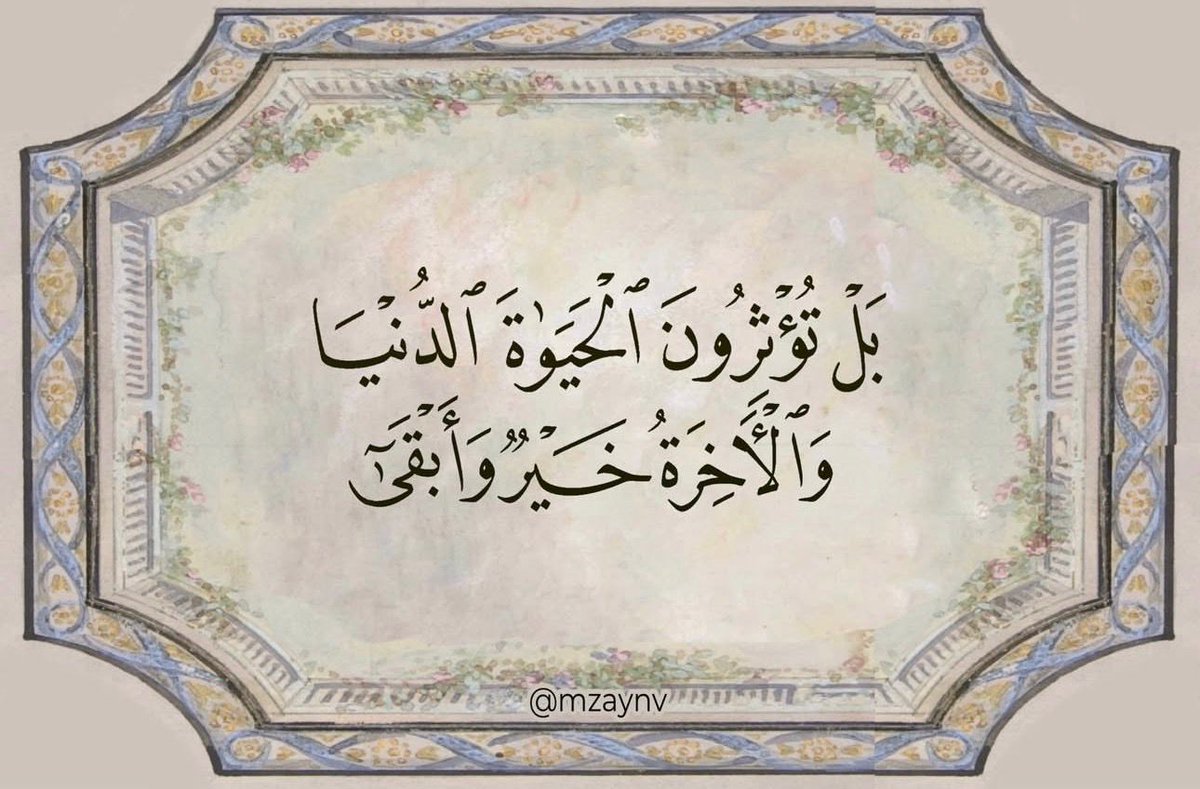 بَلْ تُؤْثِرُونَ ٱلْحَيَوٰةَ ٱلدُّنْيَا
وَٱلْأَخِرَةُ خَيْرٌ وَأَبْقَىٰٓ
@mzaynv